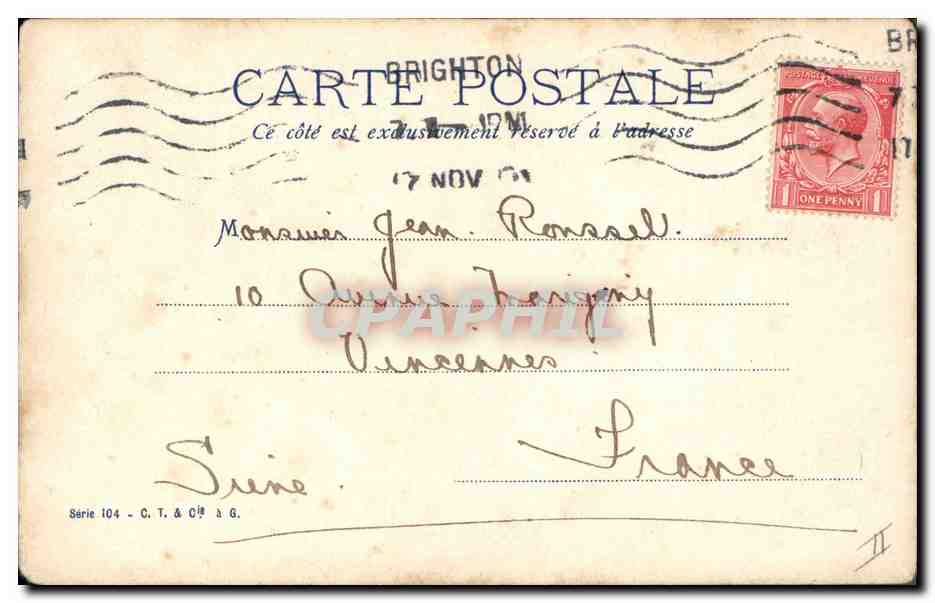 BRIGHTON
BR
CARTE POSTALE
Ce côté est exclusivement réservé à l'adresse
POSTAGE REVENUE
17 NOV
1 ONE PENNY 1
Monsieur Jean Roussel.
10 Avenue Marigny
CPAPHIL
Vincennes
France
Seine.
Série 104 - C. T. & Cie à G.
II